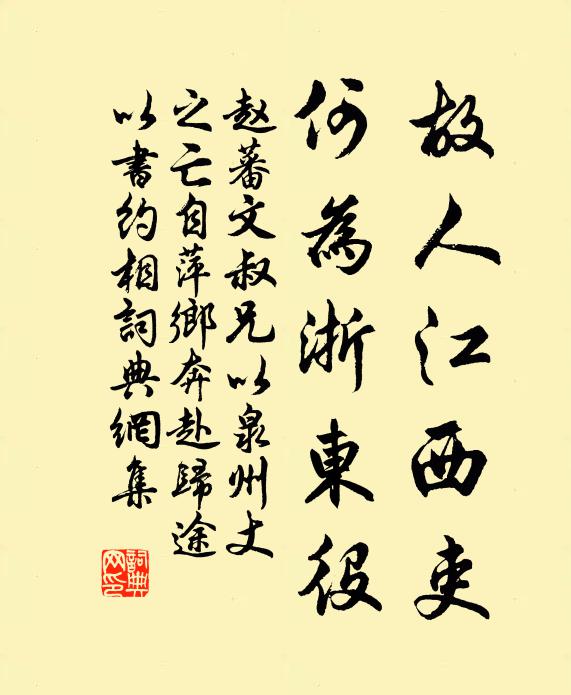 故人江西吏
何為浙東役
赵蕃文叔兄以泉州丈
之亡自萍鄉奔赴歸途
以書約相詞典網集
詞典
网印